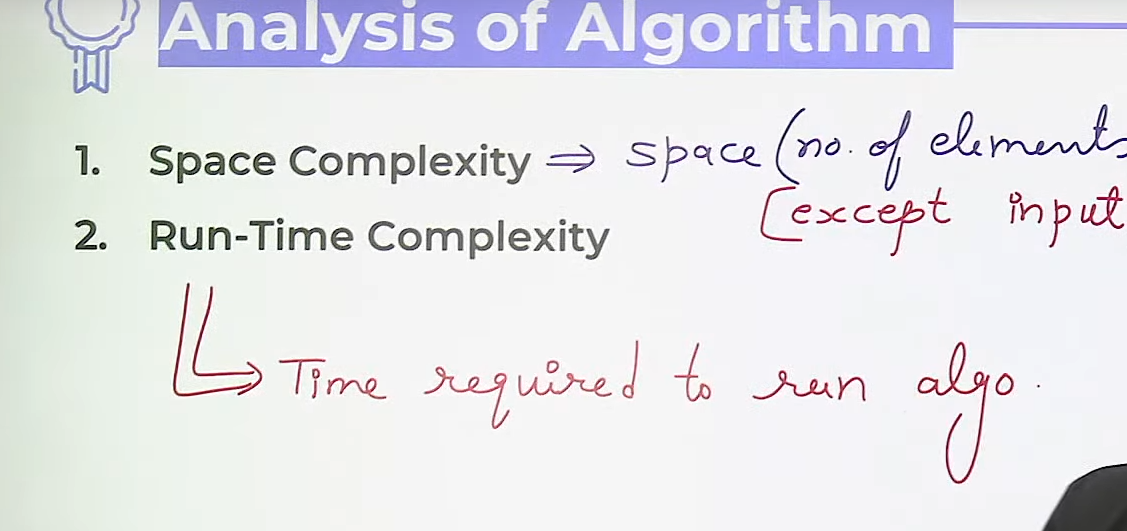 Analysis of Algorithm
1. Space Complexity ⇒ space (no. of elements
[except input
2. Run-Time Complexity
Time required to run algo.